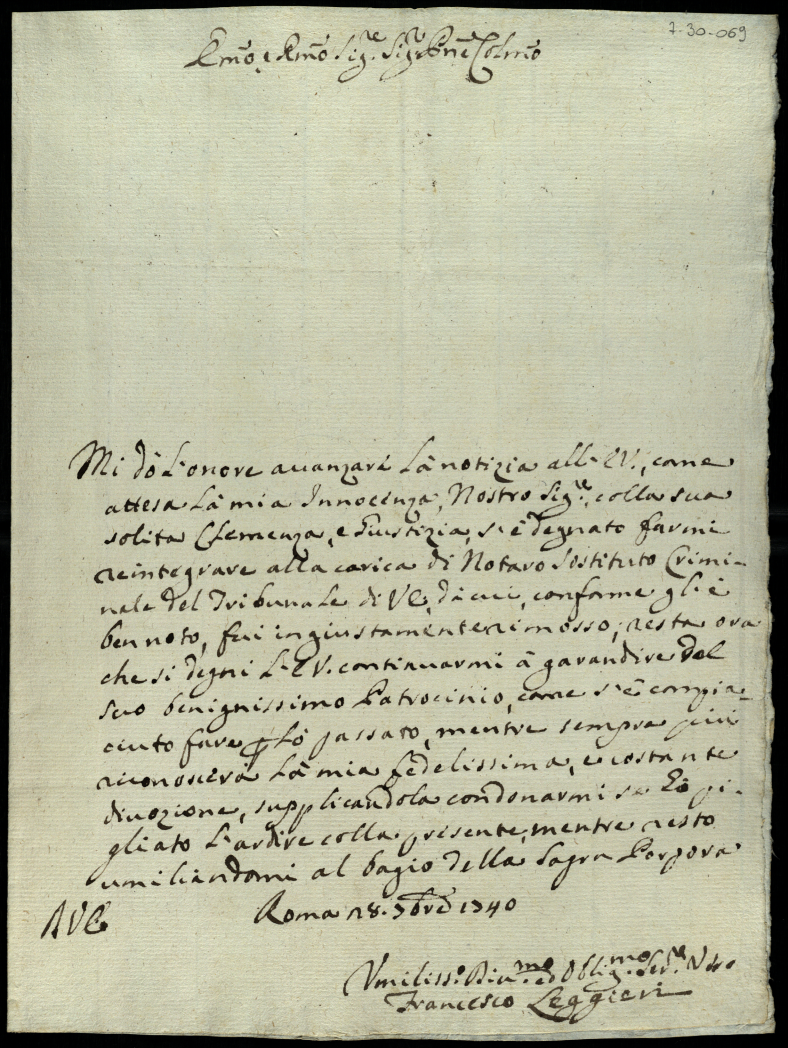 7-30-069
Em̃o, e Rm̃o Sig.re Sig.r Prñe Colm̃o
Mi dò l'onore auanzare là notizia all'EV., come
attesa là mia Innocenza, Nostro Sig.re, colla sua
solita Clemenza, e Giustizia, s'è degnato farmi
reintegrare alla carica di Notaro Sostituto Crimi-
nale del Tribunale di VE, da cui, conforme gli è
ben noto, fui ingiustamente rimosso; resta ora
che si degni l'EV. continuarmi à garandire del
suo benignissimo Patrocinio, come s'è compia-
ciuto fare ꝑ lò passato, mentre sempre più
riconoscerà là mia fedelissima, e costante
diuozione, supplicandola condonarmi se hò pi-
gliato l'ardire colla presente, mentre resto
umiliandomi al bagio della Sagra Porpora
Roma 28. 7bre 1740
AVE
Vmiliss.o Diu.mo ed Oblig.mo Ser.re Vro
Francesco Leggieri